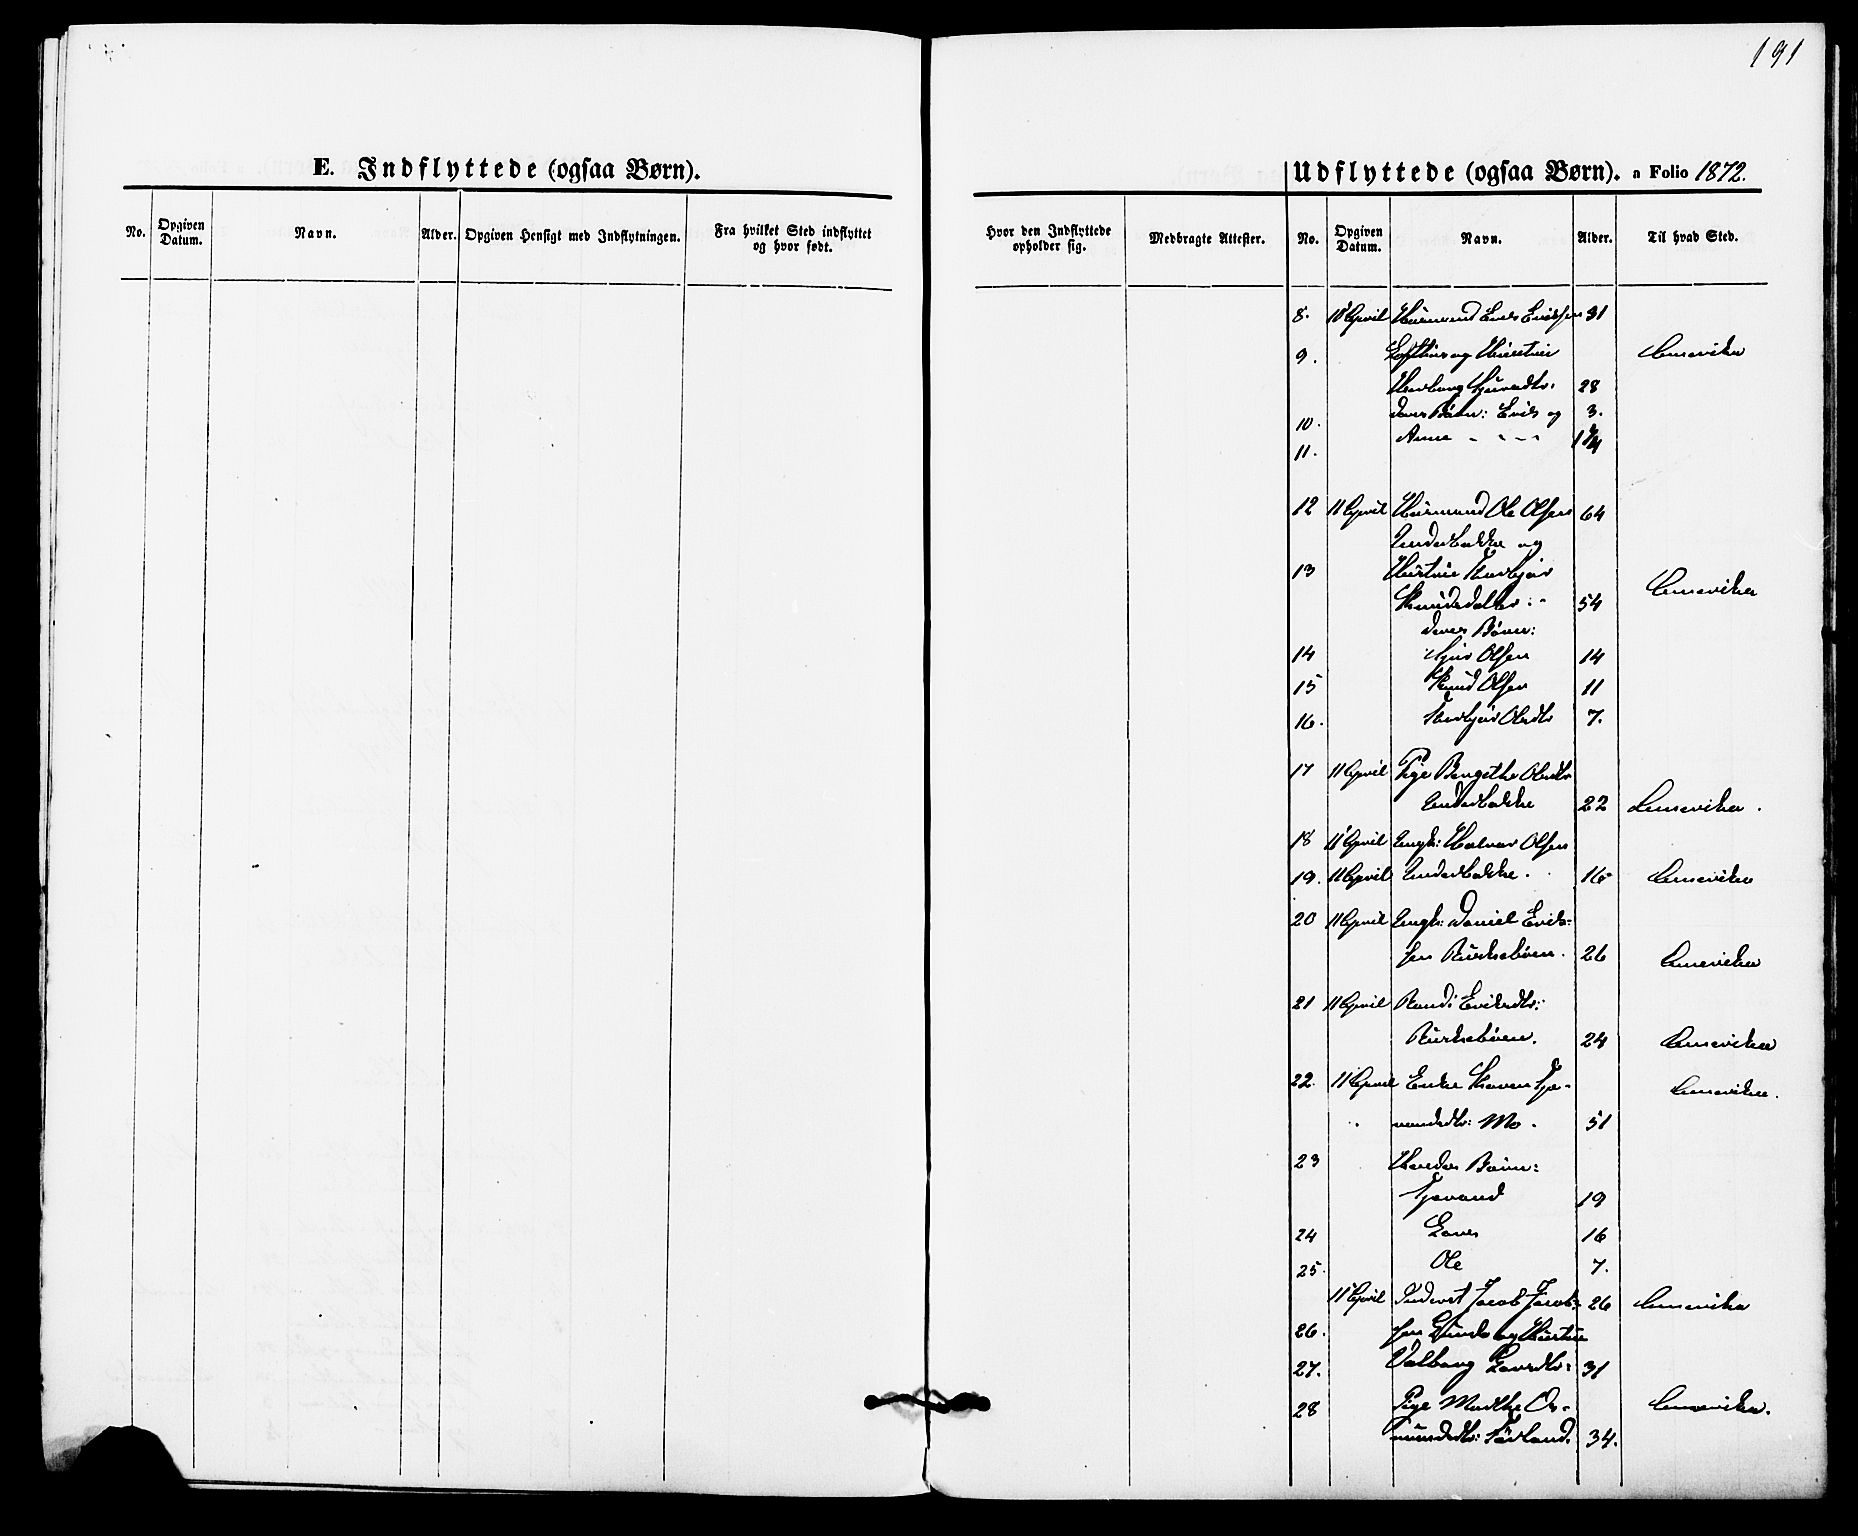 191
E. Indflyttede (ogsaa Børn).
No. Opgiven Datum. Navn. Alder. Opgiven Hensigt med Indflytningen. Fra hvilket Sted indflyttet og hvor født.
Udflyttede (ogsaa Børn). a Folio 1872.
Hvor den Indflyttede opholder sig. Medbragte Attester. No. Opgiven Datum. Navn. Alder. Til hvad Sted.
8. 10 April Huusmand Lars Eriksen 31
9. Lofthus og Hustru Amerika
28
10. deres Børn: Erik og 3.
11. Anne 1 1/4
12 11 April Huusmand Ole Olsen 64
Underbakke og
13 Hustrue Thorbjør Amerika
Knudsdatter 54
deres Børn:
14 Olsen 14
15 Knud Olsen 11
16. Thorbjør Olsdtr 7.
17 11 April Pige Bengithe Olsdtr
Underbakke 22 Amerika.
18 11 April Ungk: Halvor Olsen
19. 11 April Underbakke. 16 Amerika
20 11 April Ungk: Daniel Erik-
sen 26 Amerika
21 11 April Randi Eriksdtr:
24 Amerika
22. 11 April Enke Karen Tje- Amerika.
randsdtr: Mo. 51
23 Hendes Børn:
Tjerand 19
24 Lars 16
25. Ole 7.
11 April Inderst Jacob Jacob- 26 Amerika
26. sen og Hustrue
27. Valborg Larsdtr: 31
28 Pige Marthe Os- Amerika.
mundsdtr: Førland. 34.